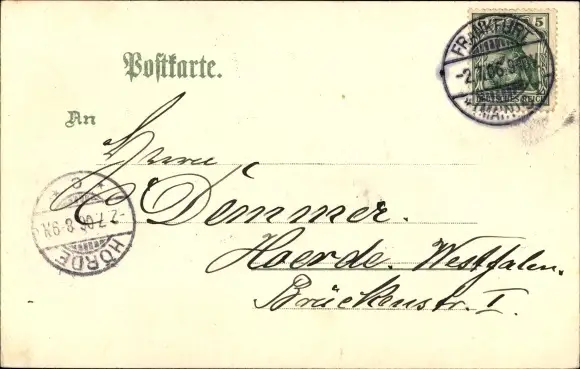 Postkarte.
An
Herrn
C. Demmer.
Hoerde. Westfalen.
Brückenstr. I.
FRANKFURT
-2.7.06.
(MAIN)
5
HÖRDE
-2.7.06.8-9N.
c